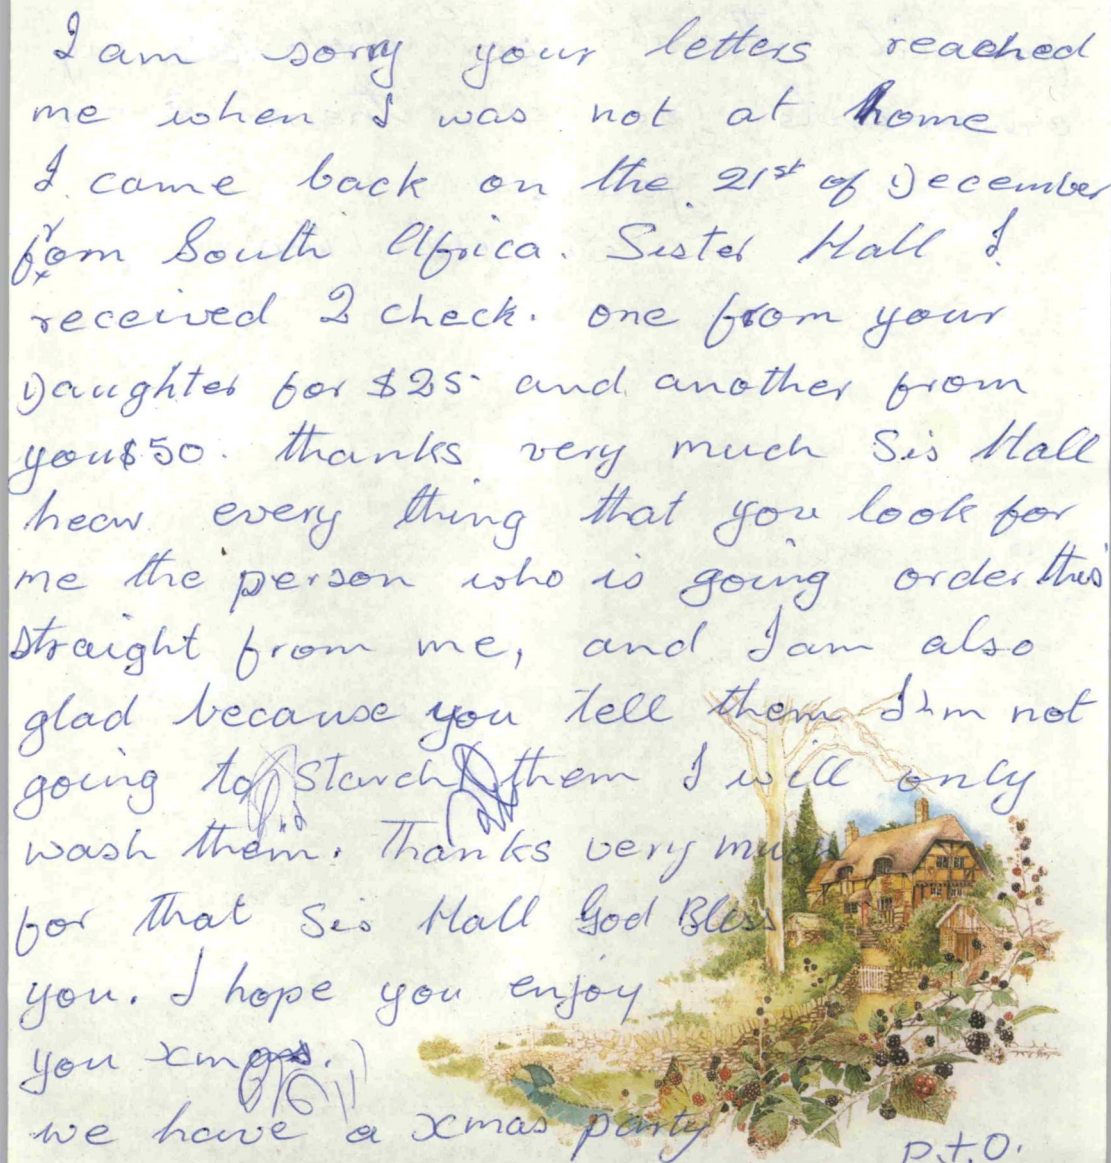 I am sorry your letters reached
me when I was not at home
I came back on the 21st of December
from South Africa. Sister Hall I
received 2 check. one from your
Daughter for $25 and another from
you $50. thanks very much Sis Hall
hear every thing that you look for
me the person who is going order this
straight from me, and I am also
glad because you tell them I'm not
going to Starch them I will only
wash them. Thanks very much
for that Sis Hall God Bless
you. I hope you enjoy
you xmas.
we have a xmas party
P.t.O.